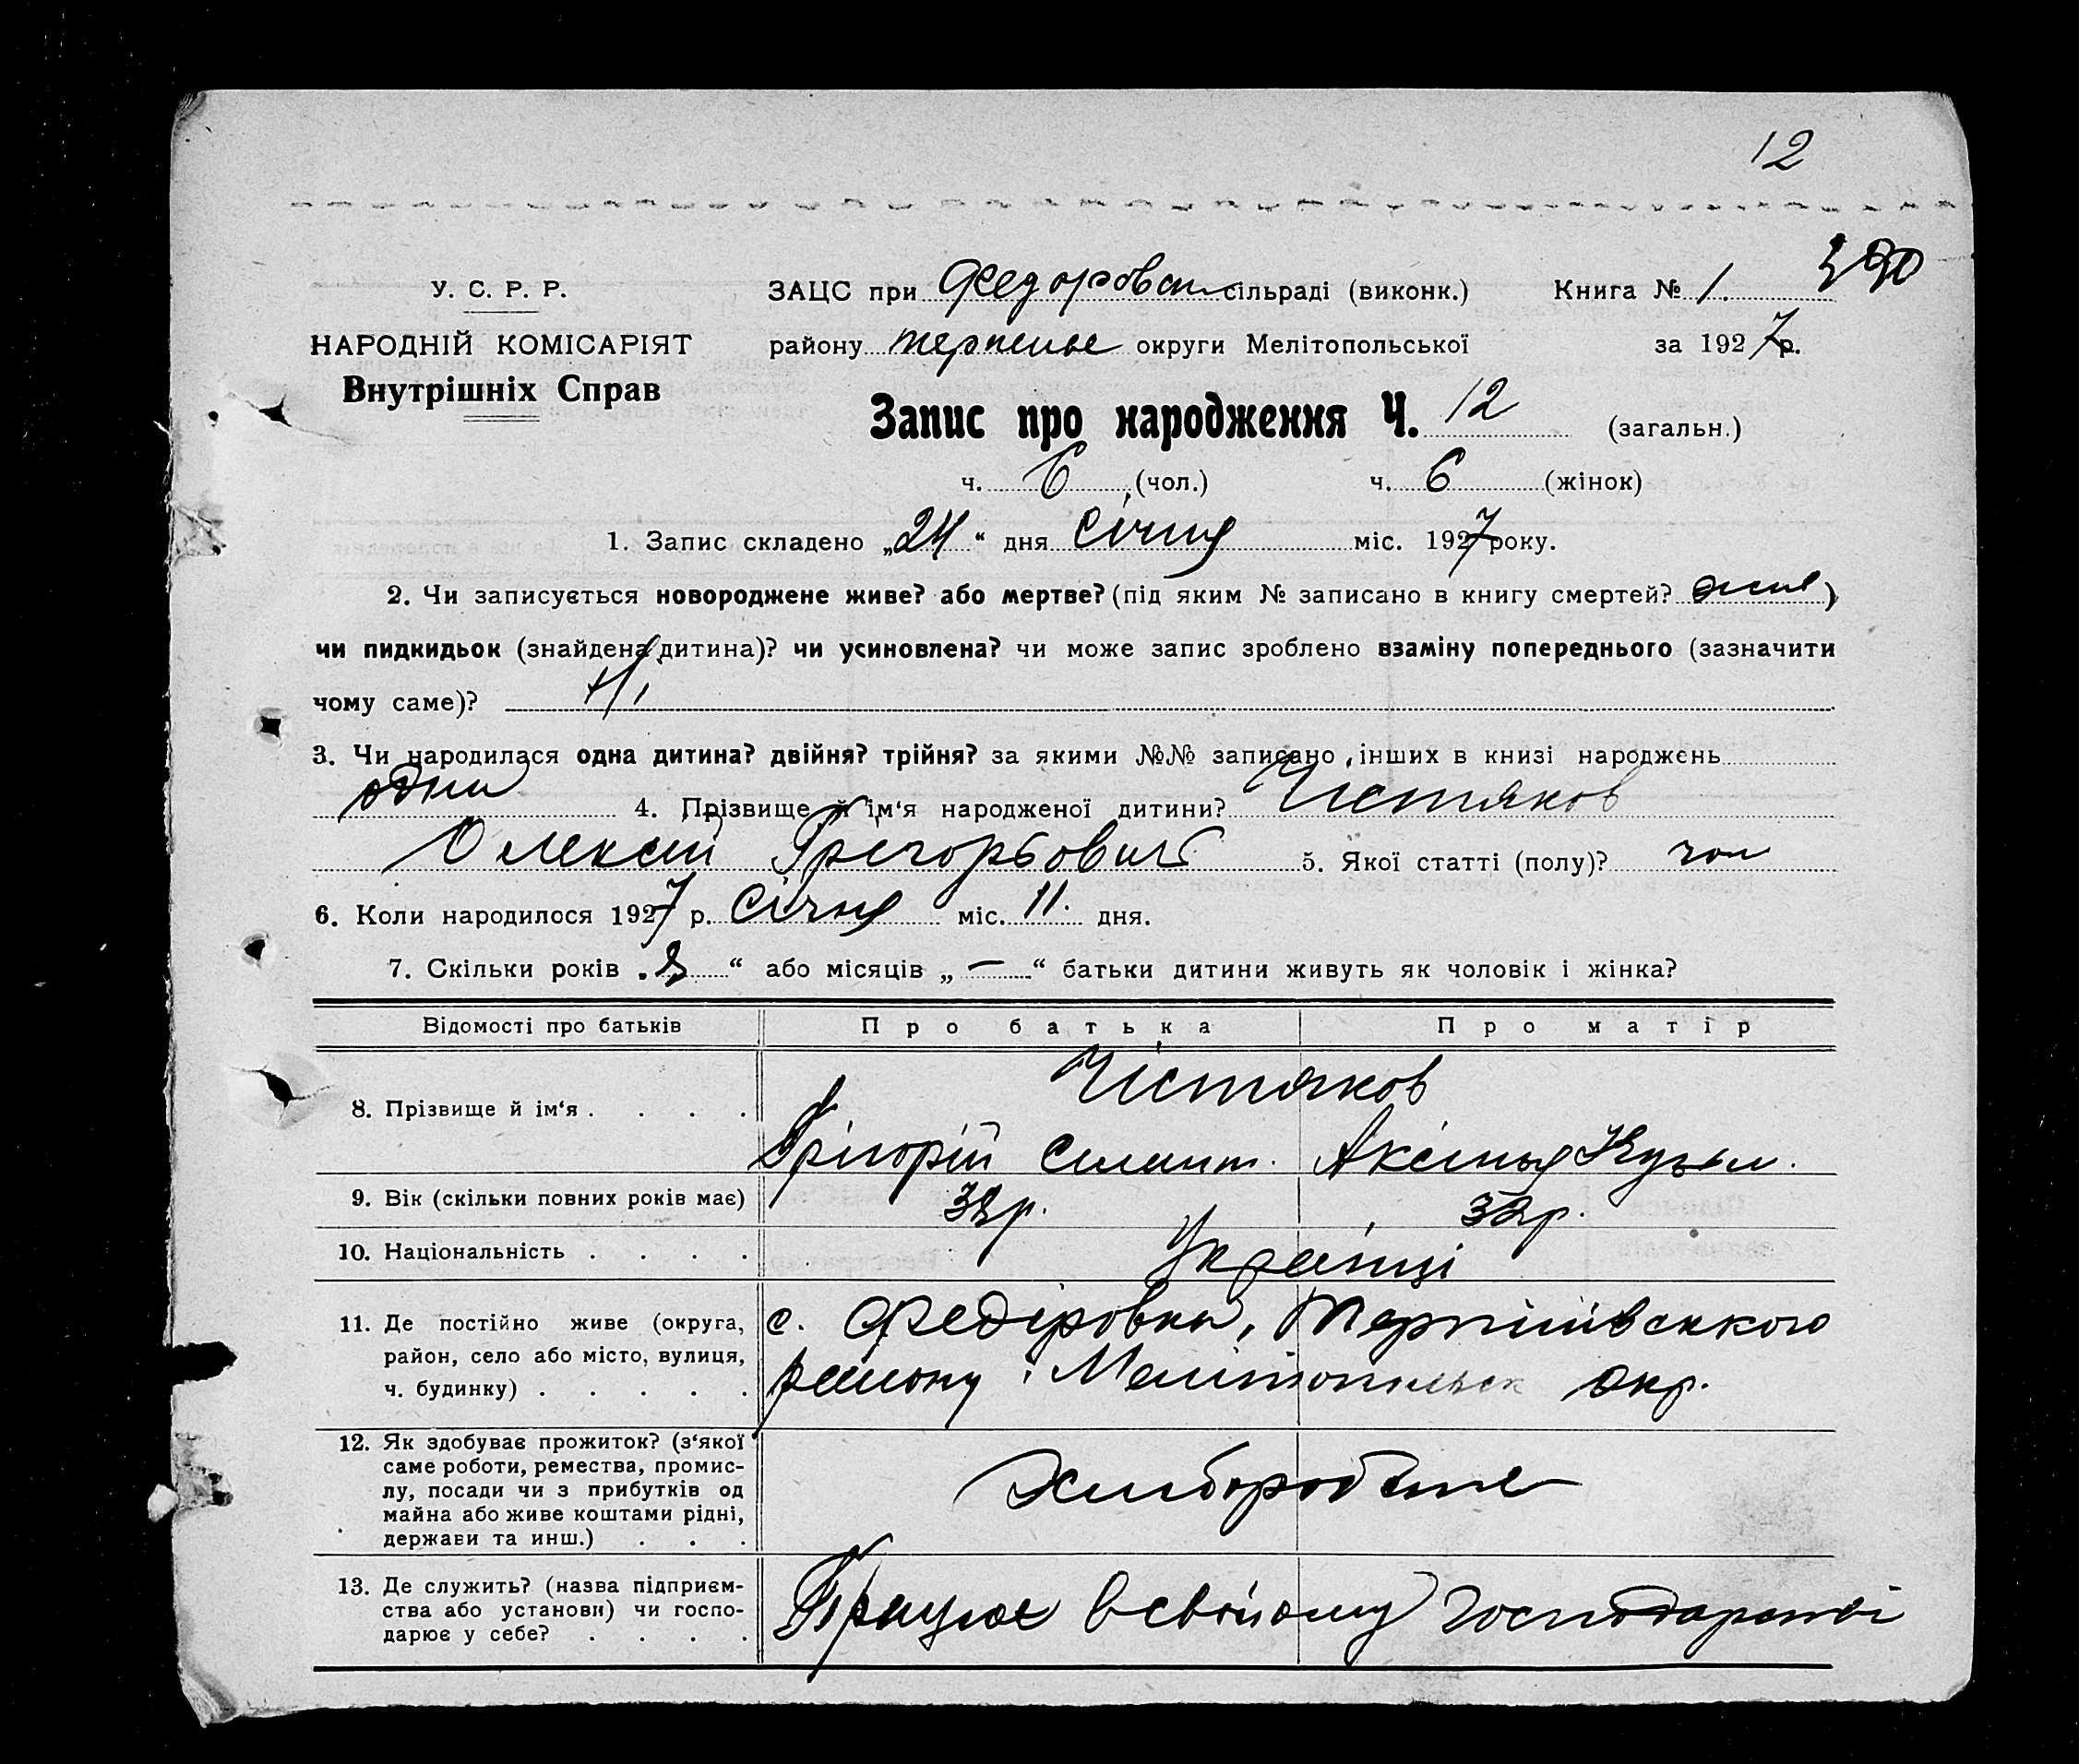 12
390
У. С. Р. Р.
НАРОДНІЙ КОМІСАРІЯТ
Внутрішніх Справ
ЗАЦС при Федоровск сільраді (виконк.) Книга № 1.
району Терпенье округи Мелітопольської за 1927 р.
Запис про народження Ч. 12 (загальн.)
ч. 6 (чол.) ч. 6 (жінок)
1. Запис складено „24“ дня Січня міс. 1927 року.
2. Чи записується новороджене живе? або мертве? (під яким № записано в книгу смертей? живе)
чи пидкидьок (знайдена дитина)? чи усиновлена? чи може запис зроблено взаміну попереднього (зазначити
чому саме)? Ні
3. Чи народилася одна дитина? двійня? трійня? за якими №№ записано інших в книзі народжень
одна 4. Прізвище й ім‘я народженої дитини? Чистяков
Олексій Григорьович 5. Якої статті (полу)? чол
6. Коли народилося 1927 р. Січня міс. 11. дня.
7. Скільки років „8“ або місяців „—“ батьки дитини живуть як чоловік і жінка?
Відомості про батьків Про батька Про матір
8. Прізвище й ім‘я . . . . Чистяков
Грігорій Силант. Аксинья Кузьм.
9. Вік (скільки повних років має) 32р. 32р.
10. Національність . . . . Українці
11. Де постійно живе (округа, район, село або місто, вулиця, ч. будинку) . . . . .
с. Федіровка, Терпініівського
району Мелітопольск окр.
12. Як здобуває прожиток? (з‘якої саме роботи, ремества, промис-
лу, посади чи з прибутків од
майна або живе коштами рідні,
держави та инш.) . . .
Хліборобство
13. Де служить? (назва підприєм-
ства або установи) чи госпо-
дарює у себе? . . . .
Працює в свойому господарстві